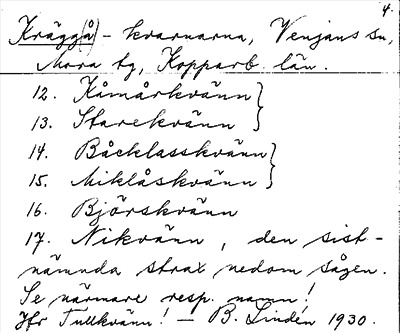 4.
Krägg(å)-kvarnarna, Venjans sn,
Mora tg, Kopparb. län.
12. Kåmårkvänn
13. Starekvänn
14. Båcklasskvänn
15. Miklåskvänn
16. Björskvänn
17. Nikvänn, den sist-
nämnda strax nedom sågen.
Se närmare resp. namn!
Jfr Tullkvänn! — B. Lindén 1930.